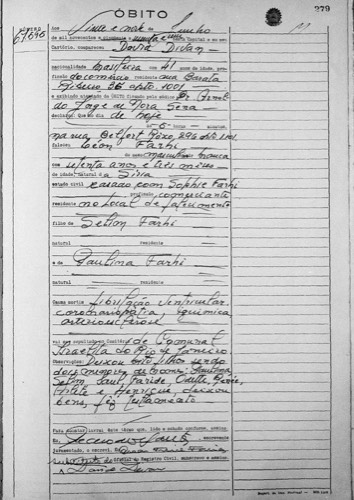 ÓBITO
279
NÚMERO
67690
Aos Vinte e nove de Junho
de mil novecentos e cinquenta e um
Cartório, compareceu David Divan
nacionalidade brasileira com 41 anos de idade, pro-
fissão do comércio residente rua Barata
Ribeiro 36 apto 1001
e exibindo atestado de ÓBITO firmado pelo médico Dr.
declarou: Que no dia de hoje
às 6 horas
na rua Belfort Roxo 296 apto 1101
faleceu Léon Farhi
do sexo masculino branca
com setenta anos e três meses
de idade, natural da Síria
estado civil casado com Sophie Farhi
profissão comerciante
residente no local de falecimento
filho de Selim Farhi
natural residente
e de Paulina Farhi
natural residente
Causa mortis fibrilação ventricular
coronariopatia, isquêmica
arteriosclerose
vai ser sepultado no Cemitério de Comunal
Israelita do Rio de Janeiro
Observações: Deixou oito filhos sendo
dois menores de nome: Paulina
Selim, Saul, Faride, Odette, Renée,
Arlete e Henrique, deixou
bens, fez testamento
Para constar lavrei este termo que, lido e achado conforme, assina.
Eu,
juramentado, o escrevi. E eu,
substituto do Oficial do Registro Civil, subscrevo e assino.
David Divan